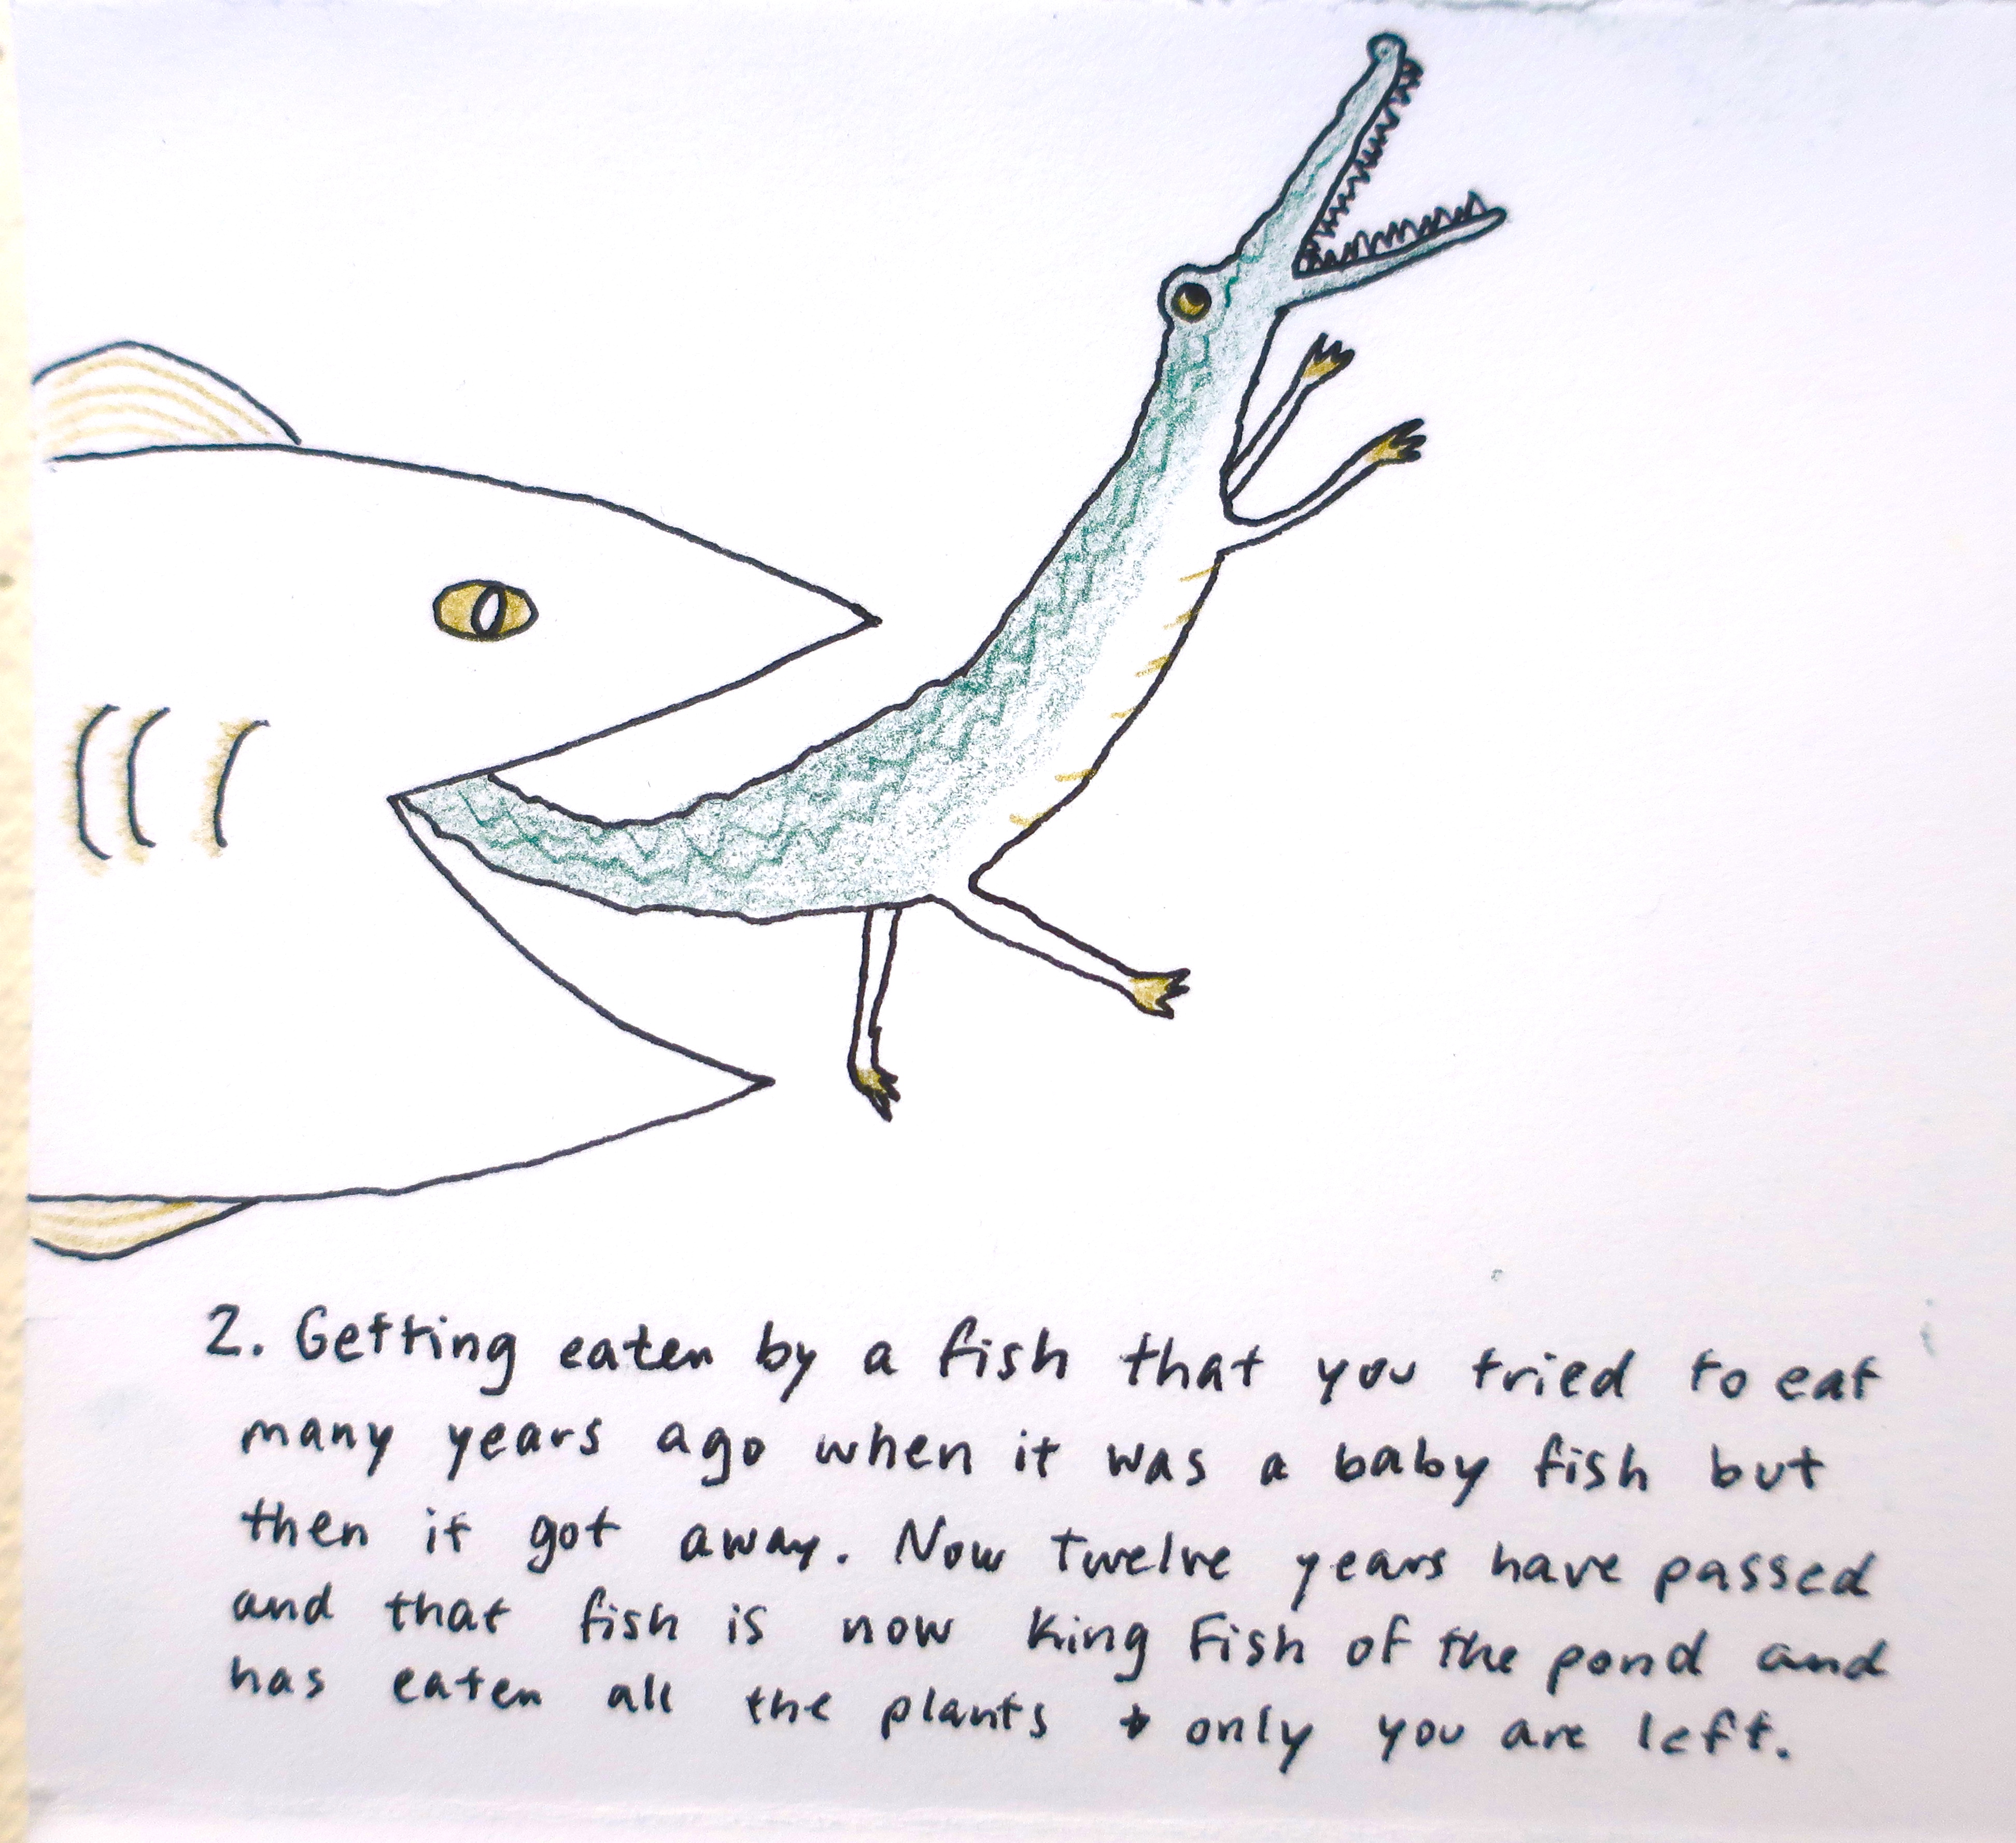 2. Getting eaten by a fish that you tried to eat
many years ago when it was a baby fish but
then it got away. Now twelve years have passed
and that fish is now King Fish of the pond and
has eaten all the plants + only you are left.